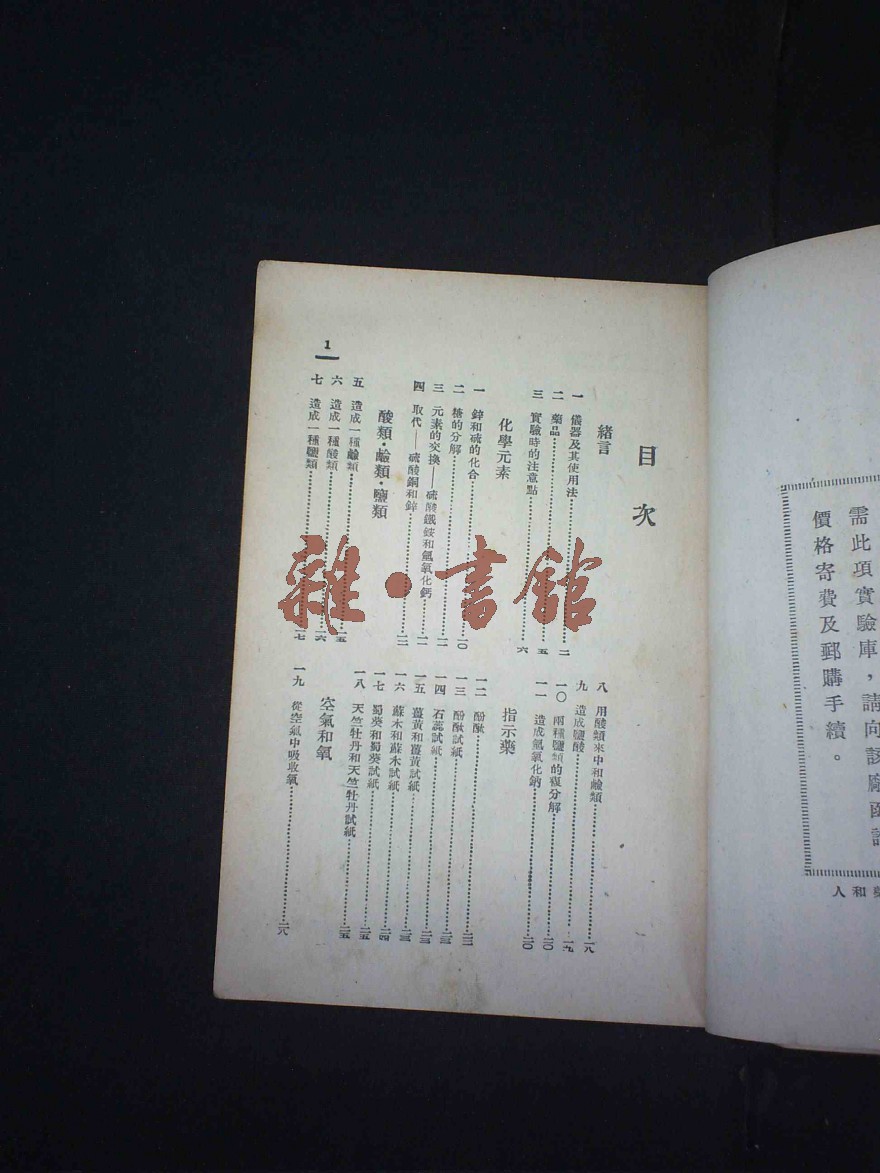 需此項實驗庫，請向該廠函
價格寄費及郵購手續。
和人
目次
緒言
一 儀器及其使用法……二
二 藥品……五
三 實驗時的注意點……六
化學元素
一 鋅和硫的化合
二 糖的分解……一〇
三 元素的交換——硫酸鐵銨和氫氧化鈣……一一
四 取代——硫酸銅和鋅……一二
酸類・鹼類・鹽類
五 造成一種鹼類……一五
六 造成一種酸類……一六
七 造成一種鹽類……一七
八 用酸類來中和鹼類……一八
九 造成鹽酸……一九
一〇 兩種鹽類的複分解……二〇
一一 造成氫氧化鈉……二〇
指示藥
一二 酚酞……二二
一三 酚酞試紙……二三
一四 石蕊試紙……二三
一五 薑黃和薑黃試紙……二三
一六 蘇木和蘇木試紙……二三
一七 蜀葵和蜀葵試紙……二四
一八 天竺牡丹和天竺牡丹試紙……二五
空氣和氧
一九 從空氣中吸收氧……二八
1
雜・書館